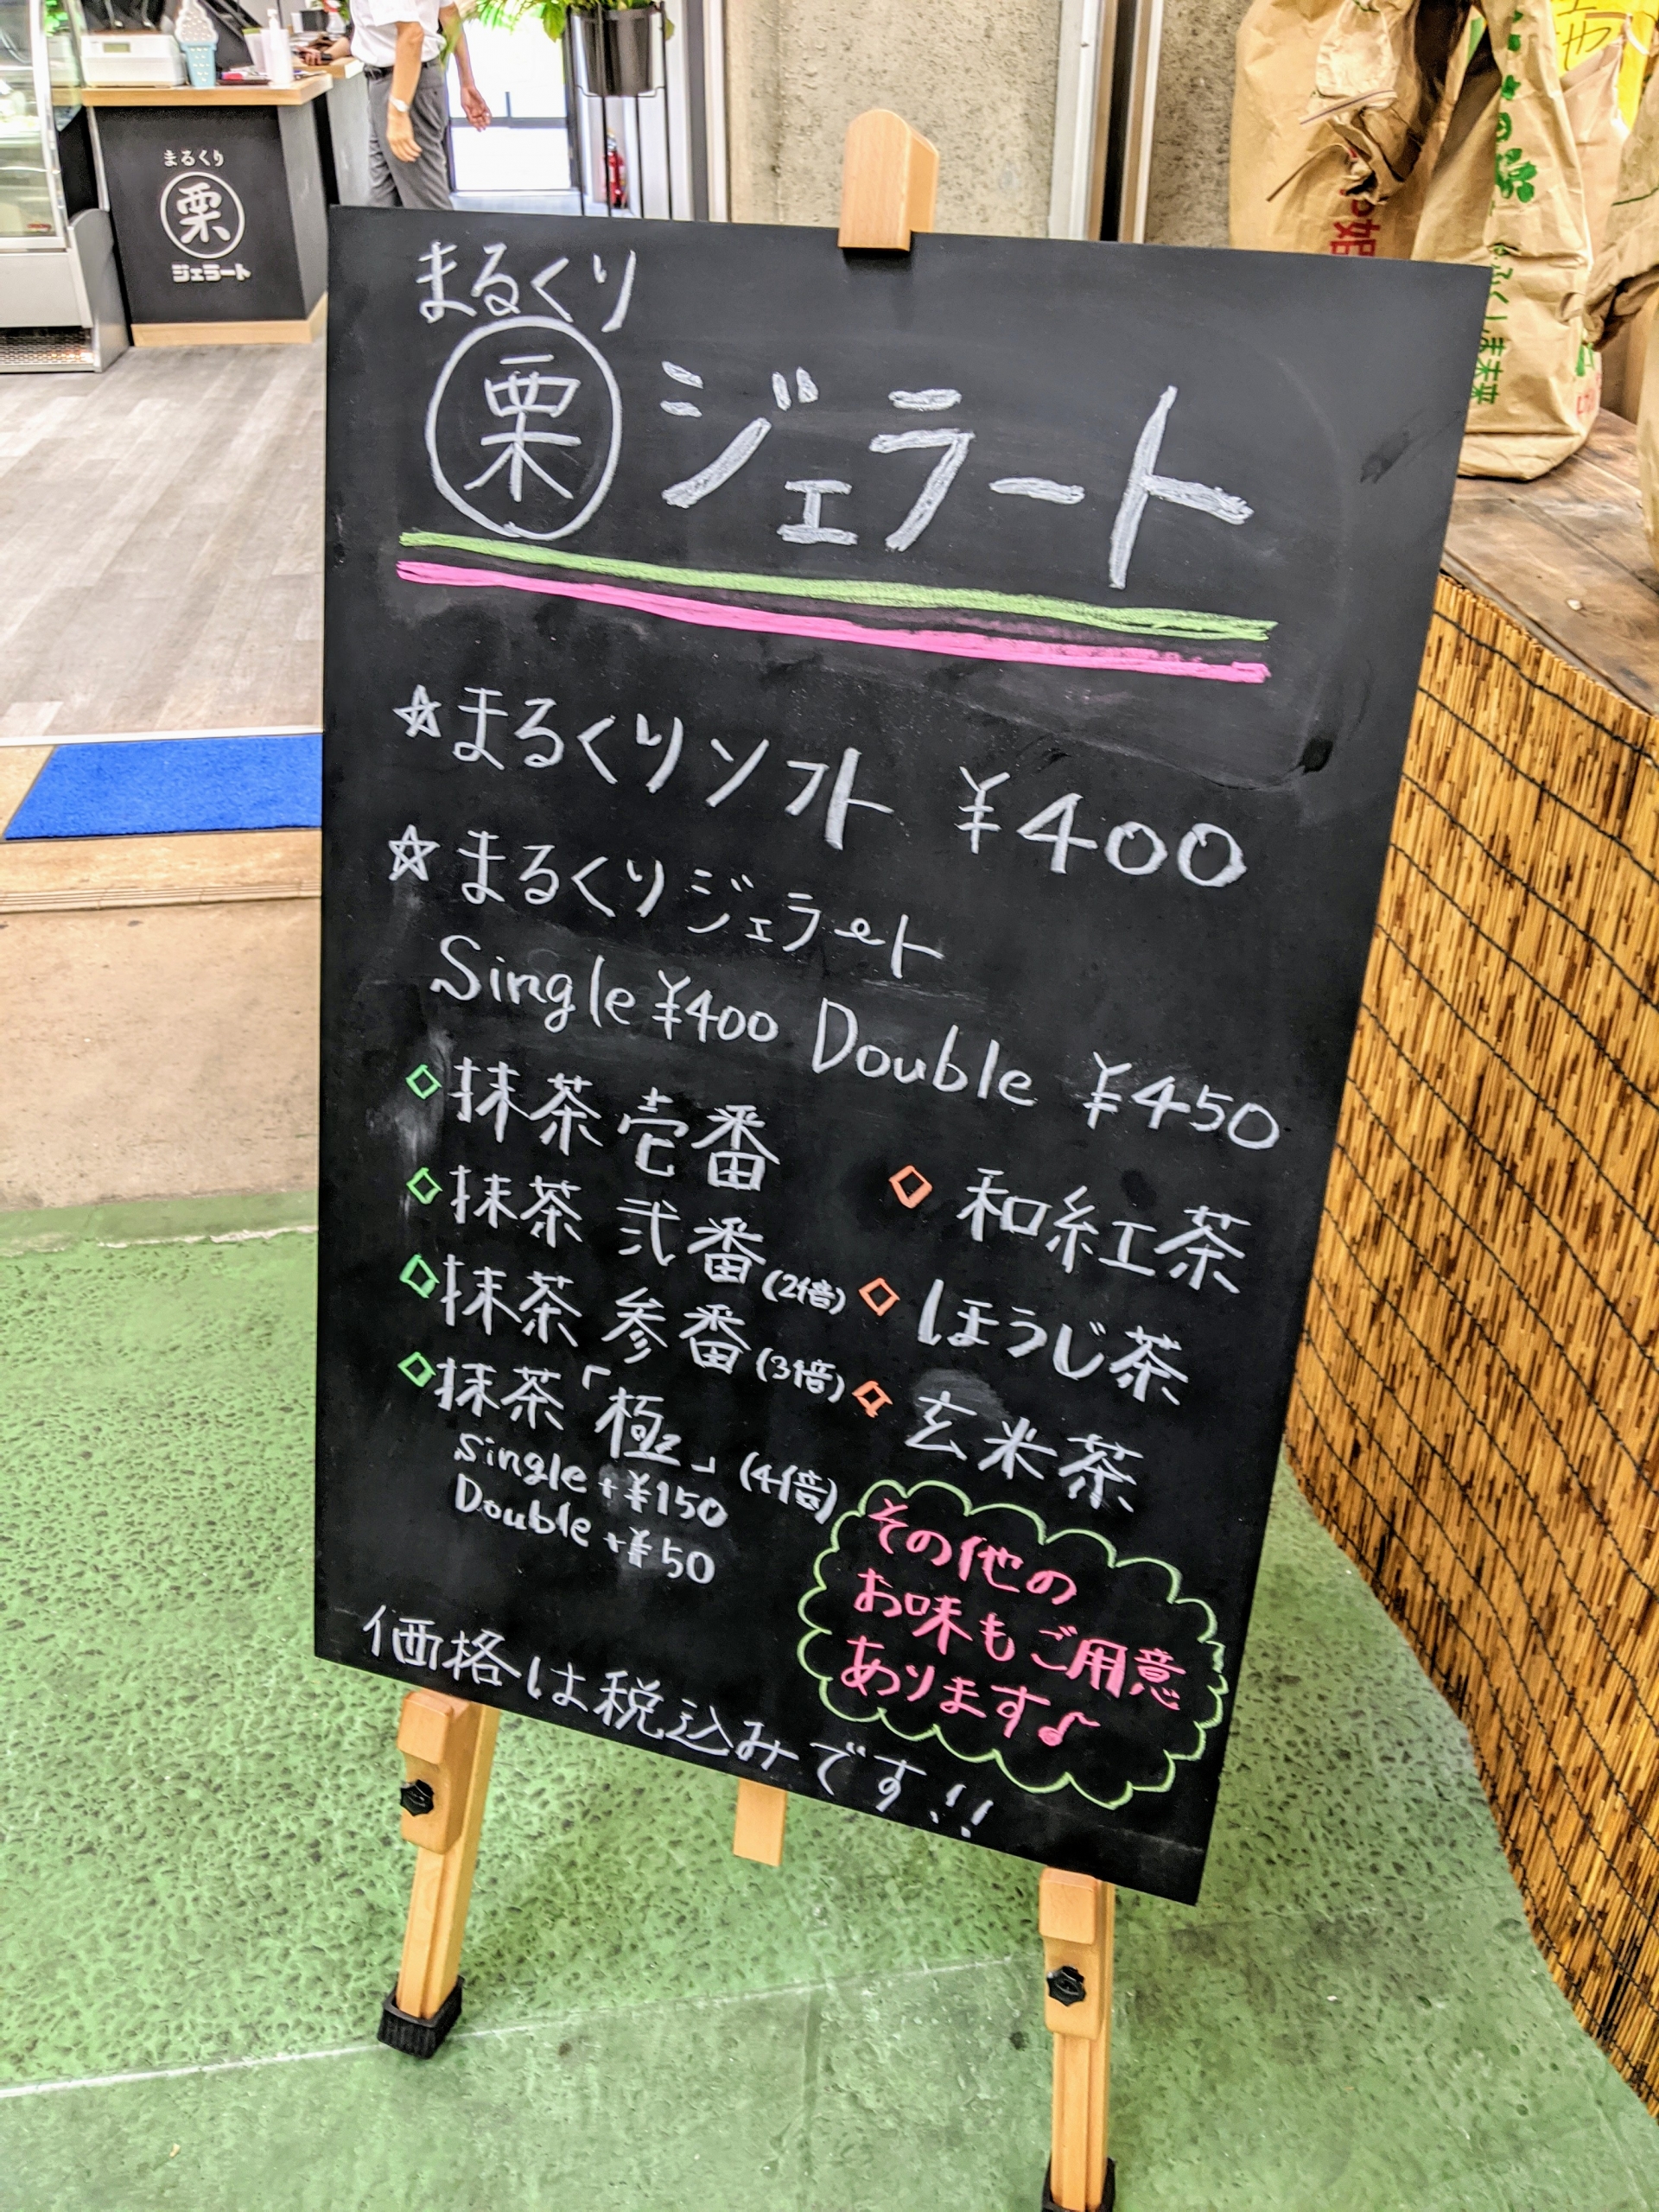 まるくり
栗
ジェラート
まるくり
栗 ジェラート
☆まるくりソフト ¥400
☆まるくりジェラート
Single ¥400 Double ¥450
◇抹茶 壱番
◇抹茶 弐番(2倍)
◇抹茶 参番(3倍)
◇抹茶「極」(4倍)
Single +¥150
Double +¥50
◇和紅茶
◇ほうじ茶
◇玄米茶
その他の
お味もご用意
あります♪
価格は税込みです!!